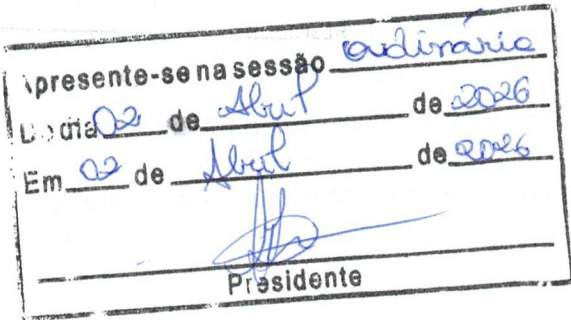 presente-se na sessão ordinária
Do dia 02 de Abril de 2026
Em 02 de Abril de 2026
Presidente